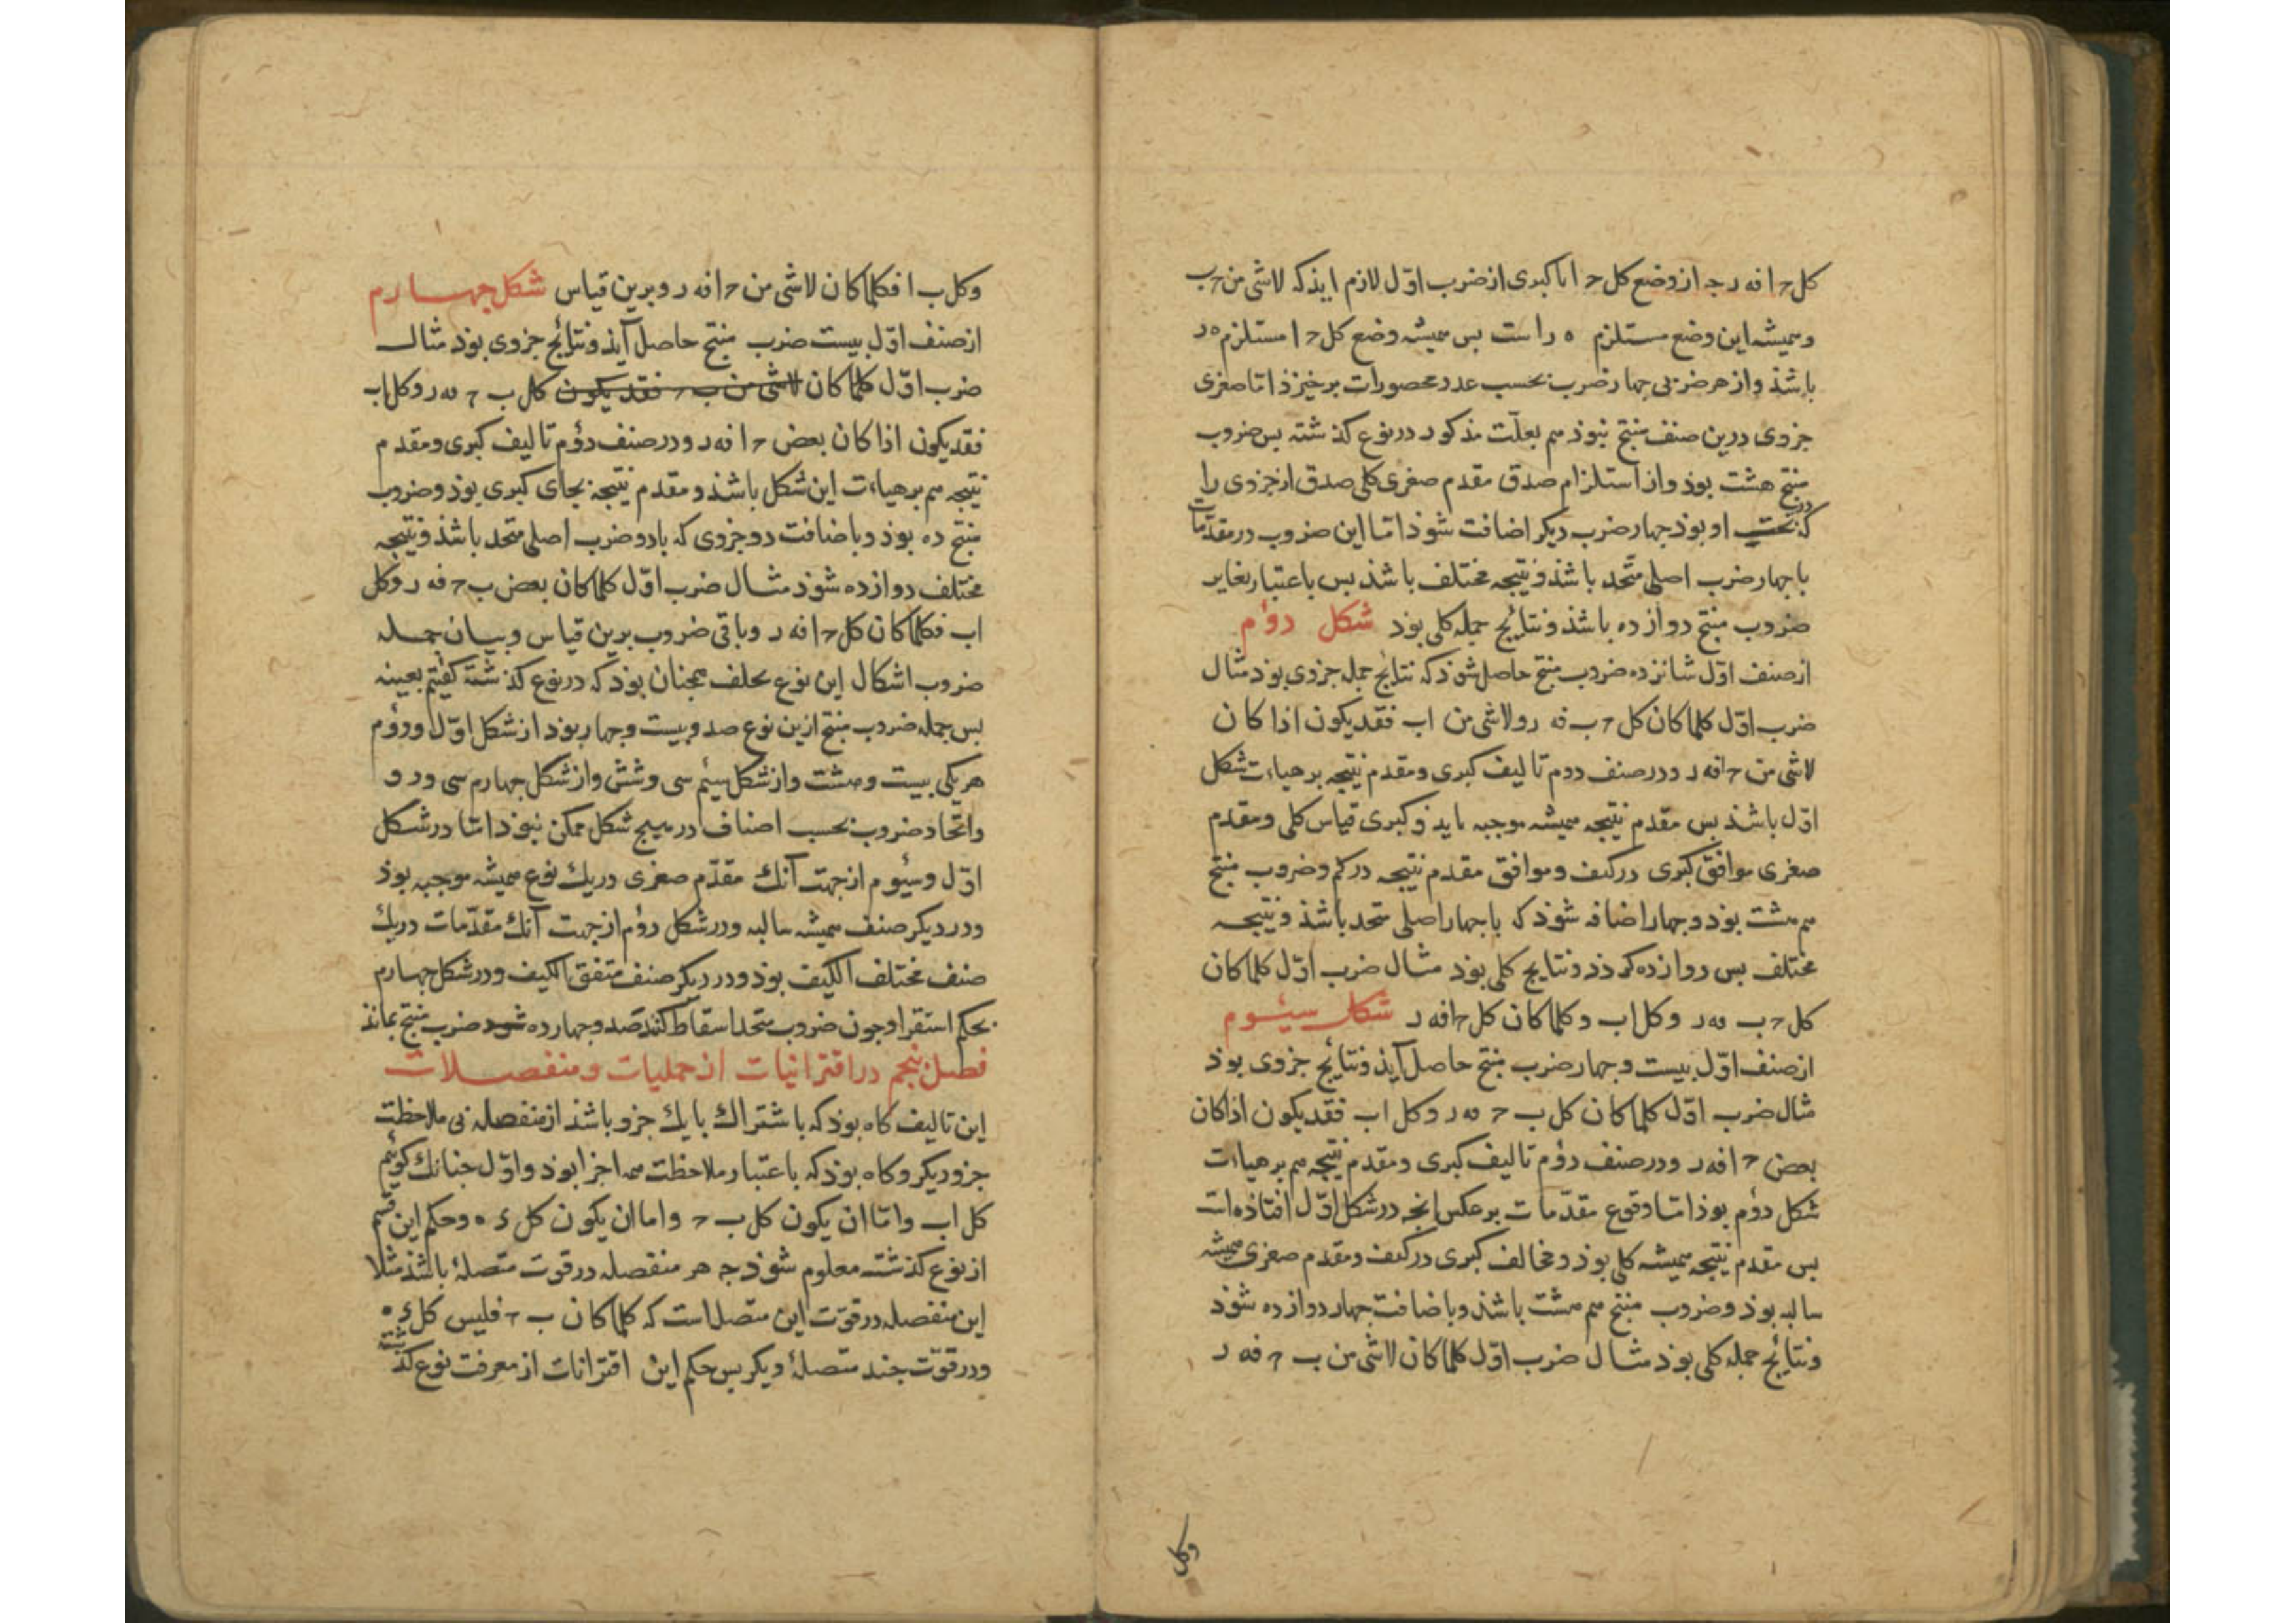 کل ح ا فه ر چه از وضع کل ح ا با کبری از ضرب اوّل لازم ایذ که لاشی من ح ب
و همیشه این وضع مستلزم ه ر است بس همیشه وضع کل ح ا مستلزم ه ر
باشذ و از هر ضربی جهار ضرب بحسب عدد محصورات برخیزذ اما صغری
جزوی درین صنف منتج نبوذ هم بعلّت مذکور در نوع کذشته بس ضروب
منتج هشت بوذ و از استلزام صدق مقدم صغری کلی صدق از جزوی را
که تحت او بوذ جهار ضرب دیکر اضافت شوذ امّا این ضروب در مقدّمات
با جهار ضرب اصلی متّحد باشذ و نتیجه مختلف باشذ بس باعتبار تغایر
ضروب منتج دوازده باشذ و نتایج جمله کلی بوذ شکل دوم
از صنف اوّل شانزده ضروب منتج حاصل شوذ که نتایج جمله جزوی بوذ مثال
ضرب اوّل کلما کان کل ح ب فه ر و لاشی من ا ب فقد یکون اذا کان
لاشی من ح ا فه ر و در صنف دوم تالیف کبری و مقدم نتیجه بر هیاءت شکل
اوّل باشذ بس مقدم نتیجه همیشه موجبه بایذ و کبری قیاس کلی و مقدم
صغری موافق کبری در کیف و موافق مقدم نتیجه در کم و ضروب منتج
هم هشت بوذ و جهار اضافه شوذ که با جهار اصلی متحد باشذ و نتیجه
مختلف بس دوازده کردذ و نتایج کلی بوذ مثال ضرب اوّل کلما کان
کل ح ب فه ر و کل ا ب و کلما کان کل ح ا فه ر شکل سیّوم
از صنف اوّل بیست و جهار ضرب منتج حاصل آیذ و نتایج جزوی بوذ
مثال ضرب اوّل کلما کان کل ب ح فه ر و کل ا ب فقد یکون اذا کان
بعض ح ا فه ر و در صنف دوّم تالیف کبری و مقدم نتیجه هم بر هیاءت
شکل دوم بوذ امّا وقوع مقدّمات بر عکس انجه در شکل اوّل افتاذه است
بس مقدم نتیجه همیشه کلی بوذ و مخالف کبری در کیف و مقدم صغری همیشه
سالبه بوذ و ضروب منتج هم هشت باشذ و باضافت جهار دوازده شوذ
و نتایج جمله کلی بوذ مثال ضرب اوّل کلما کان لاشی من ب ح فه ر
وکل
وکل ب ا فکلما کان لاشی من ح ا فه ر و برین قیاس شکل جهارم
از صنف اوّل بیست ضرب منتج حاصل آیذ و نتایج جزوی بوذ مثال
ضرب اوّل کلما کان لاشی من ب ح فقد یکون کل ب ح فه ر و کل ا ب
فقد یکون اذا کان بعض ح ا فه ر و در صنف دوّم تالیف کبری و مقدم
نتیجه هم بر هیاءت این شکل باشذ و مقدم نتیجه بجای کبری بوذ و ضروب
منتج ده بوذ و باضافت دو جزوی که با دو ضرب اصلی متحد باشذ و نتیجه
مختلف دوازده شوذ مثال ضرب اوّل کلما کان بعض ب ح فه ر و کل
ا ب فکلما کان کل ح ا فه ر و باقی ضروب برین قیاس و بیان جمله
ضروب اشکال این نوع بخلف همجنان بوذ که در نوع کذشته کفتیم بعینه
بس جمله ضروب منتج ازین نوع صد و بیست و جهار بوذ از شکل اوّل و دوّم
هر یکی بیست و هشت و از شکل سیّم سی و شش و از شکل جهارم سی و دو
و اتّحاد ضروب بحسب اصناف در هیج شکل ممکن نبوذ امّا در شکل
اوّل و سیّوم از جهت آنک مقدّم صغری در یک نوع همیشه موجبه بوذ
و در دیکر صنف همیشه سالبه و در شکل دوم از جهت آنک مقدّمات در یک
صنف مختلف الکیف بوذ و در دیکر صنف متفق الکیف و در شکل جهارم
بحکم استقرا و جون ضروب متحد اسقاط کنند صد و جهارده شود ضرب منتج بماند
فصل بنجم در اقترانیات از حملیات و منفصلات
این تالیف کاه بوذ که باشتراک با یک جزو باشذ از منفصله بی ملاحظت
جزو دیکر و کاه بوذ که باعتبار ملاحظت همه اجزا بوذ و اوّل جنانک کوئیم
کل ا ب و امّا ان یکون کل ب ح و اما ان یکون کل د ه و حکم این قسم
از نوع کذشته معلوم شوذ جه هر منفصله در قوت متصلهٔ باشذ مثلا
این منفصله در قوّت این متصله است که کلما کان ب ح فلیس کل د ه
و در قوّت جند متصلهٔ دیکر بس حکم این اقترانات از معرفت نوع کذشته